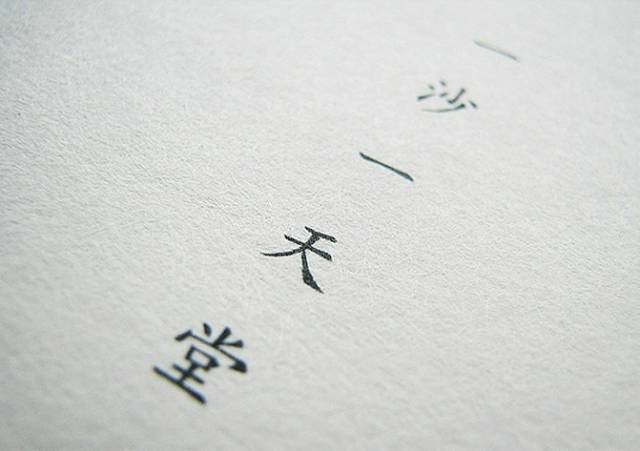 一沙一天堂